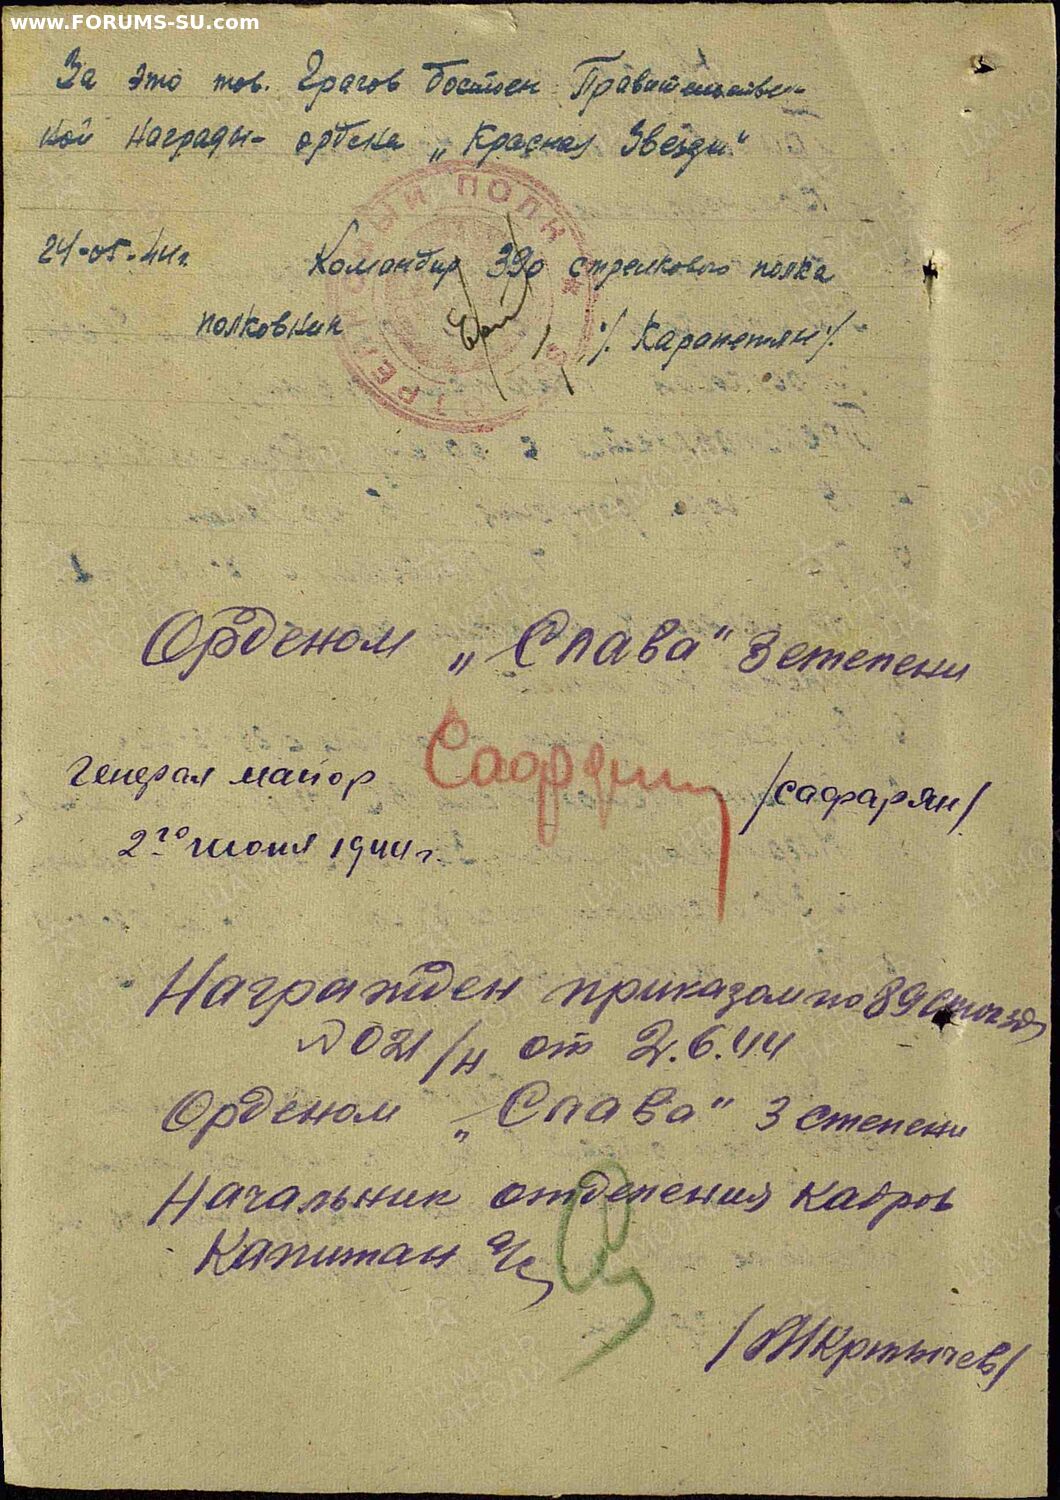 www.FORUMS-SU.com
За это тов. Грагов достоен Правительствен-
ной Награды - ордена „Красная Звезда"
СТРЕЛКОВЫЙ ПОЛК
24-05-44г. Командир 390 стрелкового полка
полковник /Карапетян/
Орденом „Слава" 3 степени
Генерал майор Сафарян /Сафарян/
2го июня 1944г.
Награжден приказом по 89
№ 021/н от 2.6.44
Орденом „Слава" 3 степени
Начальник отделения кадров
Капитан